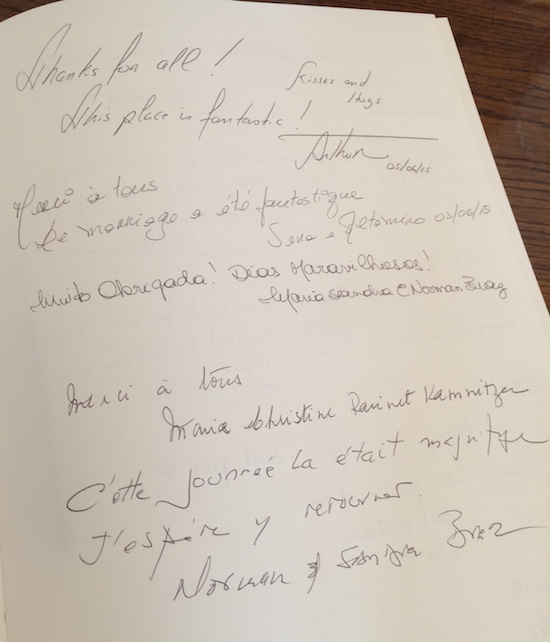 Thanks for all!
This place is fantastic!
Kisses and
Hugs
Arthur 05/06/15
Merci à tous
Le marriage a été fantastique
05/06/15
Muito Obrigada! Dias Maravilhosos!
Maria Sandra e Norman
Merci à tous
Maria Christine Ravinet Kamnitzer
Cette journée la était
J'espère y retourner.
Norman & Sandra